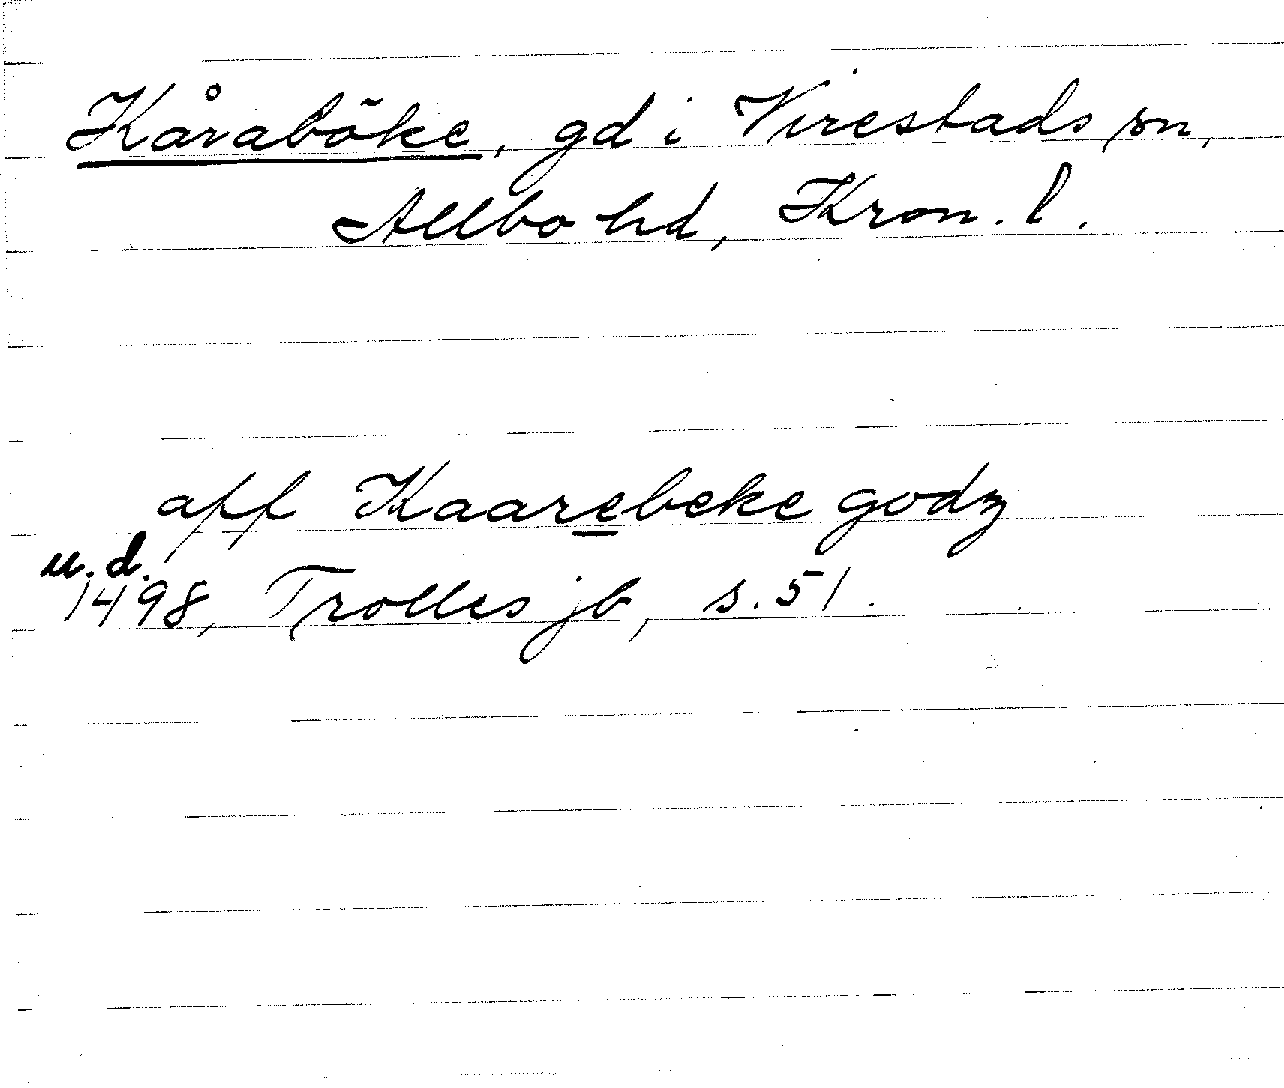 Kåraböke, gd i Virestads sn,
Allbo hd, Kron. l.
aff Kaarebeke godz
u. d.
1498, Trolles jb, s. 51.